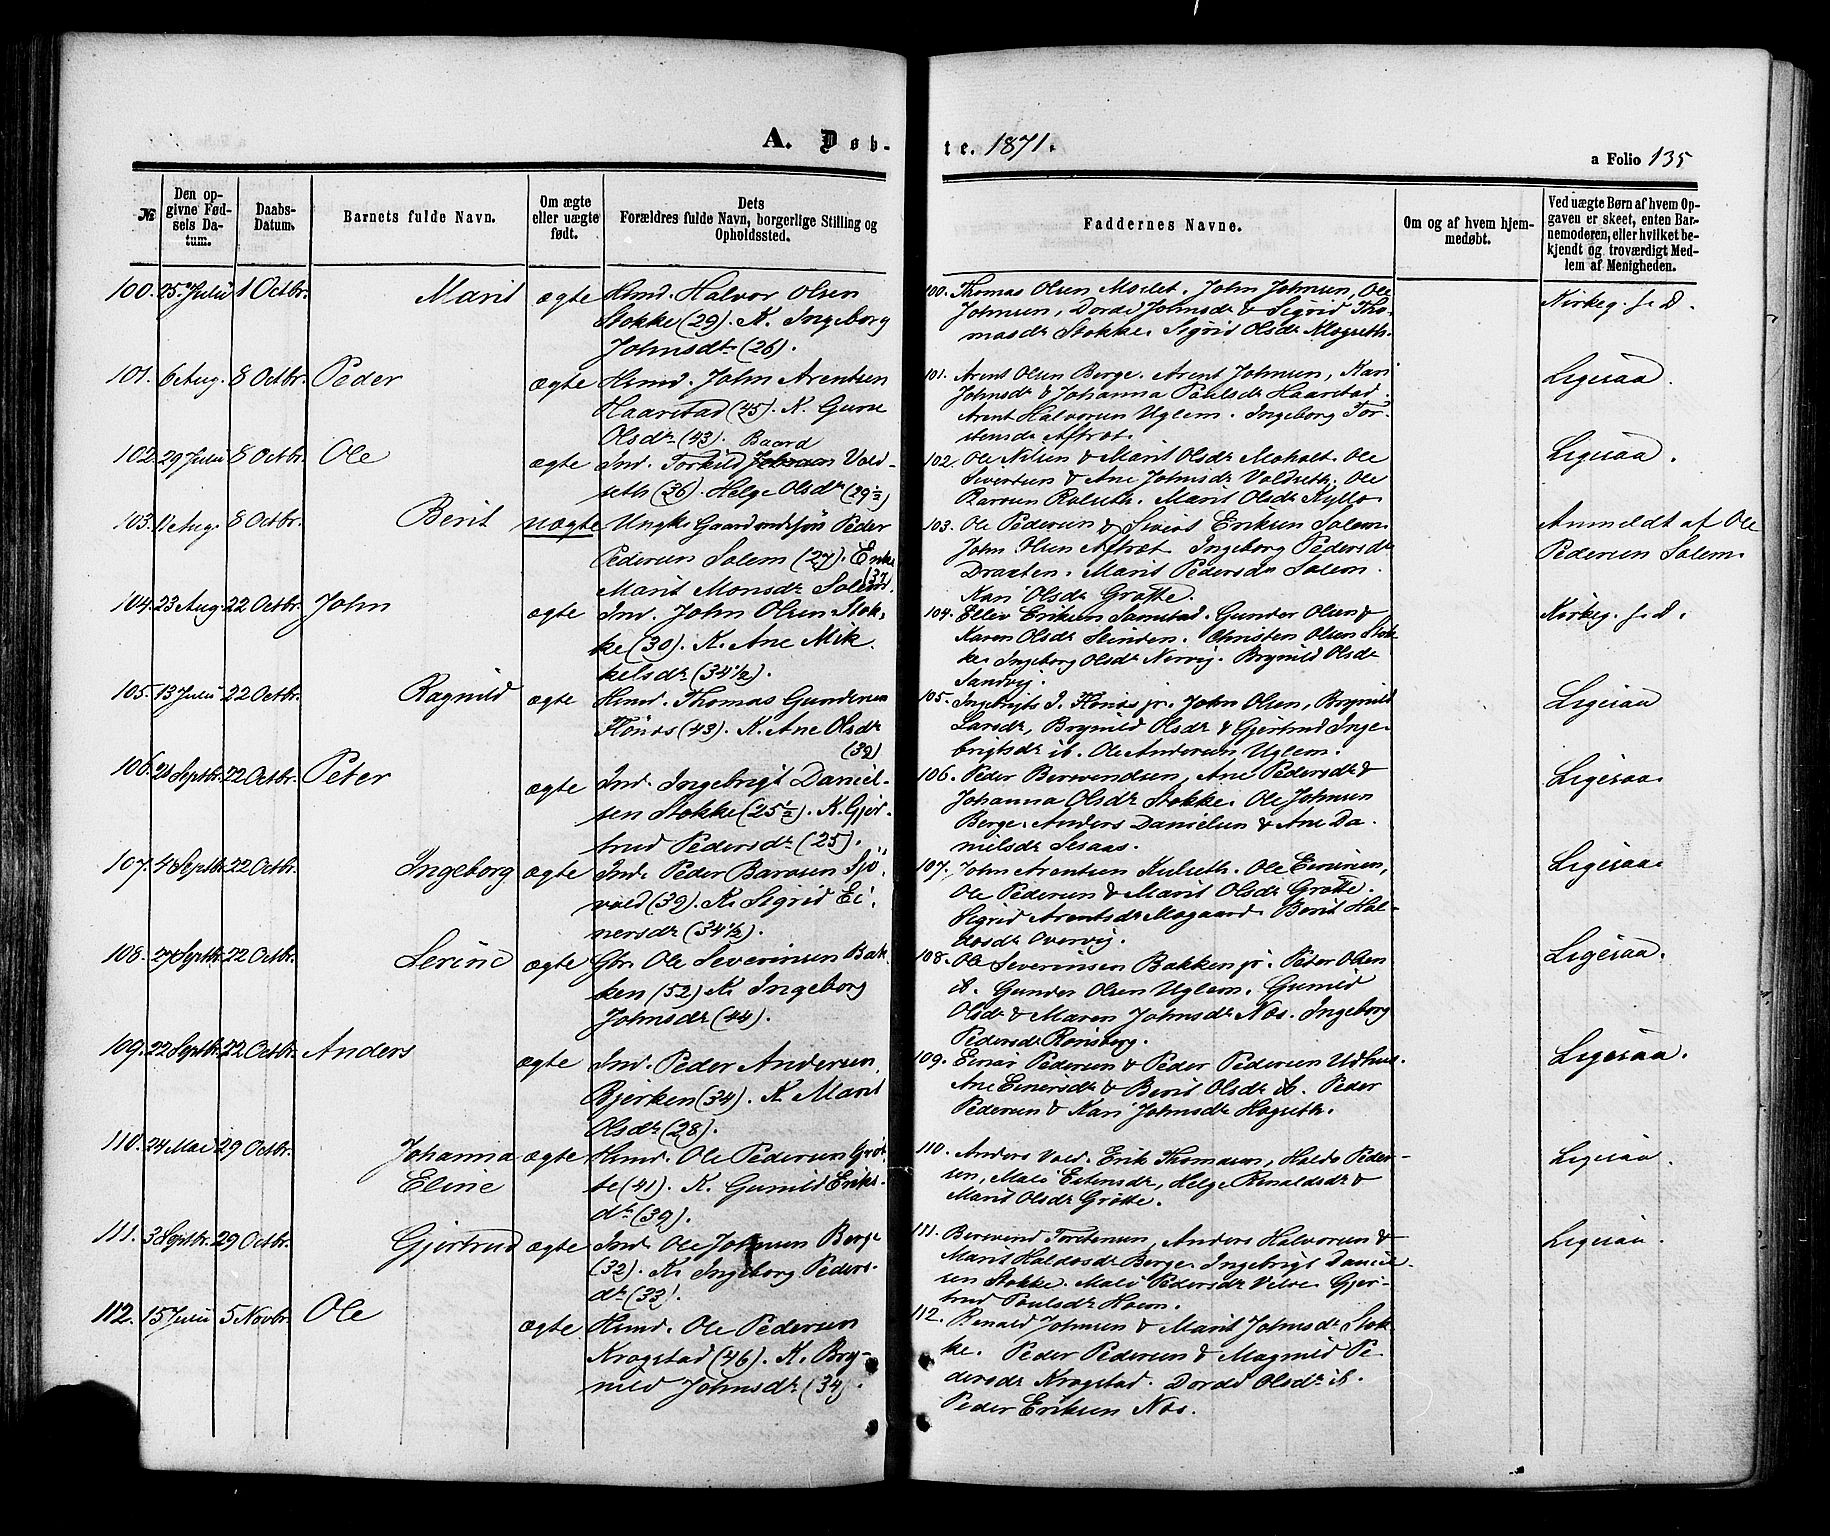 A. Døb-
te. 1871.
a Folio 135
№
Den op-
givne Fød-
sels Da-
tum.
Daabs-
Datum.
Barnets fulde Navn.
Om ægte
eller uægte
født.
Dets
Forældres fulde Navn, borgerlige Stilling og
Opholdssted.
Faddernes Navne.
Om og af hvem hjem-
medøbt.
Ved uægte Børn af hvem Op-
gaven er skeet, enten Bar-
nemoderen, eller hvilket be-
kjendt og troværdigt Med-
lem af Menigheden.
100. 25 Juli 1 Octbr. Marit ægte Hsmd. Halvor Olsen
Stokke (29). K. Ingeborg
Johnsdr (26).
100. Thomas Olsen Moslet. John Johnsen, Ole
Johnsen, Dordi Johnsdr & Sigrid Tho-
masdr Stokke. Sigrid Olsdr
Kirkeg. f. D.
101. 6 Aug. 8 Octbr. Peder ægte Hsmd. John Arentsen
Haarstad (45). K. Guru
Olsdr (43).
101. Arent Olsen Berge. Arent Johnsen, Kari
Johnsdr & Johanna Paulsdr Haarstad.
Arent Halvorsen Uglem. Ingeborg Tor-
stensdr Aftret.
Ligesaa.
102. 29 Juli 8 Octbr. Ole ægte Ind. Torkild Baard Vold-
seth (36). Helge Olsdr (29½)
102. Ole Nilsen & Marit Olsdr Moholt. Ole
Sivertsen & Ane Johnsdr Voldseth. Ole
Barosen Rolseth. Marit Olsdr Kyllo.
Ligesaa.
103. Aug. 8 Octbr. Berit uægte Ungk. Gaardmdssøn Peder
Pedersen Solem (27). Enke
Marit Monsdr Solem (37).
103. Ole Pedersen & Sivert Eriksen Solem.
John Olsen Aftret. Ingeborg Pedersdr
Draxten. Marit Pedersdr Solem.
Kari Olsdr Grøtte.
Anmeldt af Ole
Pedersen Solem.
104. 23 Aug. 22 Octbr. John ægte Ind. John Olsen Stok-
ke (30). K. Ane Mik-
kelsdr (34½).
104. Ellev Eriksen Samstad. Gunder Olsen &
Karen Olsdr Slinden. Christen Olsen Stok-
ke. Ingeborg Olsdr Nervig. Brynild Olsdr
Sandvig.
Kirkeg. f. D.
105. 13 Juli 22 Octbr. Ragnild ægte Hsmd. Thomas Gundersen
Flønes (43). K. Ane Olsdr
(39)
105. Ingebrigt I. Flønes jr. John Olsen, Brynild
Larsdr, Brynild Olsdr & Gjertrud Inge-
brigtsdr ib. Ole Andersen Uglem.
Ligesaa
106. 21 Septbr. 22 Octbr. Peter ægte Ind. Ingebrigt Daniel-
sen Stokke (25½). K. Gjer-
trud Pedersdr (25).
106. Peder Berevendsen, Ane Pedersdr &
Johanna Olsdr Stokke. Ole Johnsen
Berge. Anders Danielsen & Ane Da-
nielsdr Sesaas.
Ligesaa.
107. 4 Septbr. 22 Octbr. Ingeborg ægte Ind. Peder Barosen Sjø-
vold (39). K. Sigrid Ei-
nersdr (34½).
107. John Arentsen Kulseth. Ole Einersen,
Ole Pedersen & Marit Olsdr Grøtte.
Sigrid Arentsdr Mogaard. Berit Hal-
dosdr Overvig.
Ligesaa.
108. 27 Septbr. 22 Octbr. Serine ægte Gbr. Ole Severinsen Bak-
ken (52) K. Ingeborg
Johnsdr (44).
108. Ole Severinsen Bakken jr. Peter Olsen
ib. Gunder Olsen Uglem. Gunild
Olsdr & Maren Johnsdr Næs. Ingeborg
Pedersdr Rønsberg.
Ligesaa.
109. 22 Septbr. 22 Octbr. Anders ægte Ind. Peder Andersen
Bjerken (34). K. Marit
Olsdr (28).
109. Einar Pedersen & Peder Pedersen Udhus.
Ane Einersdr & Berit Olsdr ib. Peder
Pedersen & Kari Johnsdr Hogseth.
Ligesaa.
110. 24 Mai 29 Octbr. Johanna
Eline ægte Hsmd. Ole Pedersen Grøt-
te (41). K. Gunild Eriks-
dr (39).
110. Anders Vold. Erik Thomasen, Haldo Peder-
sen, Mali Estensdr, Helge Renaldsdr &
Marit Olsdr Grøtte.
Ligesaa.
111. 3 Septbr. 29 Octbr. Gjertrud ægte Ind. Ole Johnsen Berge
(32). K. Ingeborg Peders-
dr (33).
111. Berevend Torstensen, Anders Halvorsen &
Marit Haldosdr Berge. Ingebrigt Daniel-
sen Stokke. Mali Pedersdr Velve. Gjer-
trud Paulsdr Hoem.
Ligesaa.
112. 15 Juli 5 Novbr. Ole ægte Hsmd. Ole Pedersen
Krogstad (46). K. Bry-
nild Johnsdr (34).
112. Renald Johnsen & Marit Johnsdr Stok-
ke. Peder Pedersen & Magnild Pe-
dersdr Krogstad. Dordi Olsdr ib.
Peder Eriksen Næs.